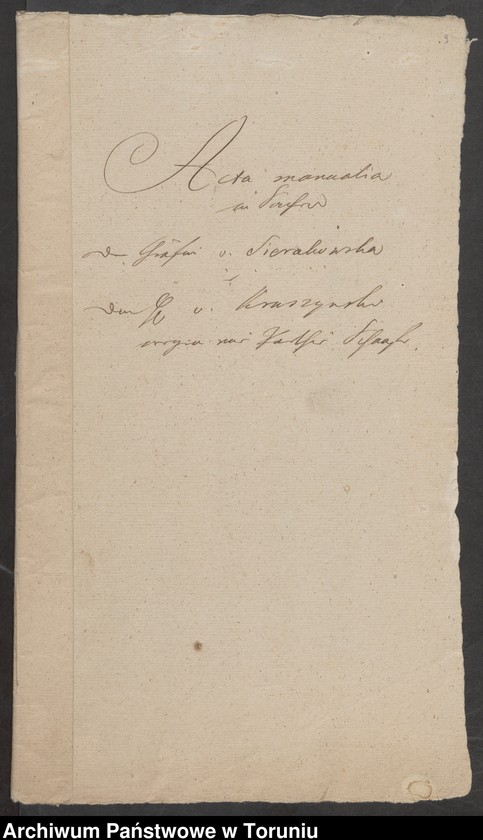 Acta manualia
in Sachen
der Gräfin v. Sierakowska
den H v. Kruszynski
wegen Schaafe.
Archiwum Państwowe w Toruniu